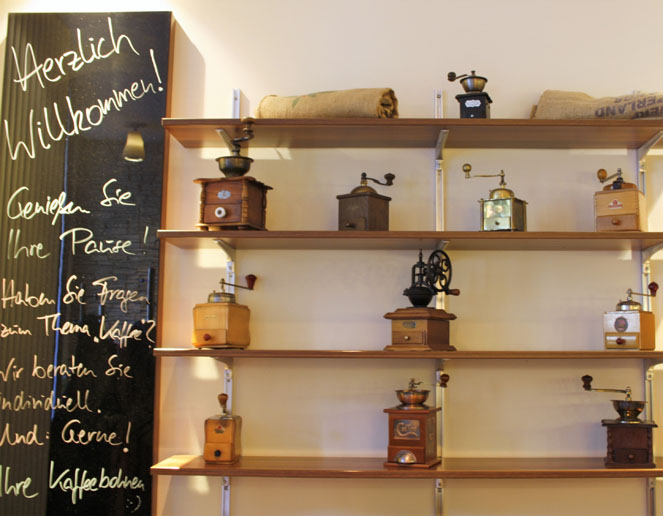 Herzlich
Willkommen!
Genießen Sie
Ihre Pause!
Haben Sie Fragen
zum Thema „Kaffee"?
Wir beraten Sie
individuell.
Und: Gerne!
Ihre Kaffeebohnen
:-)
ERLAND